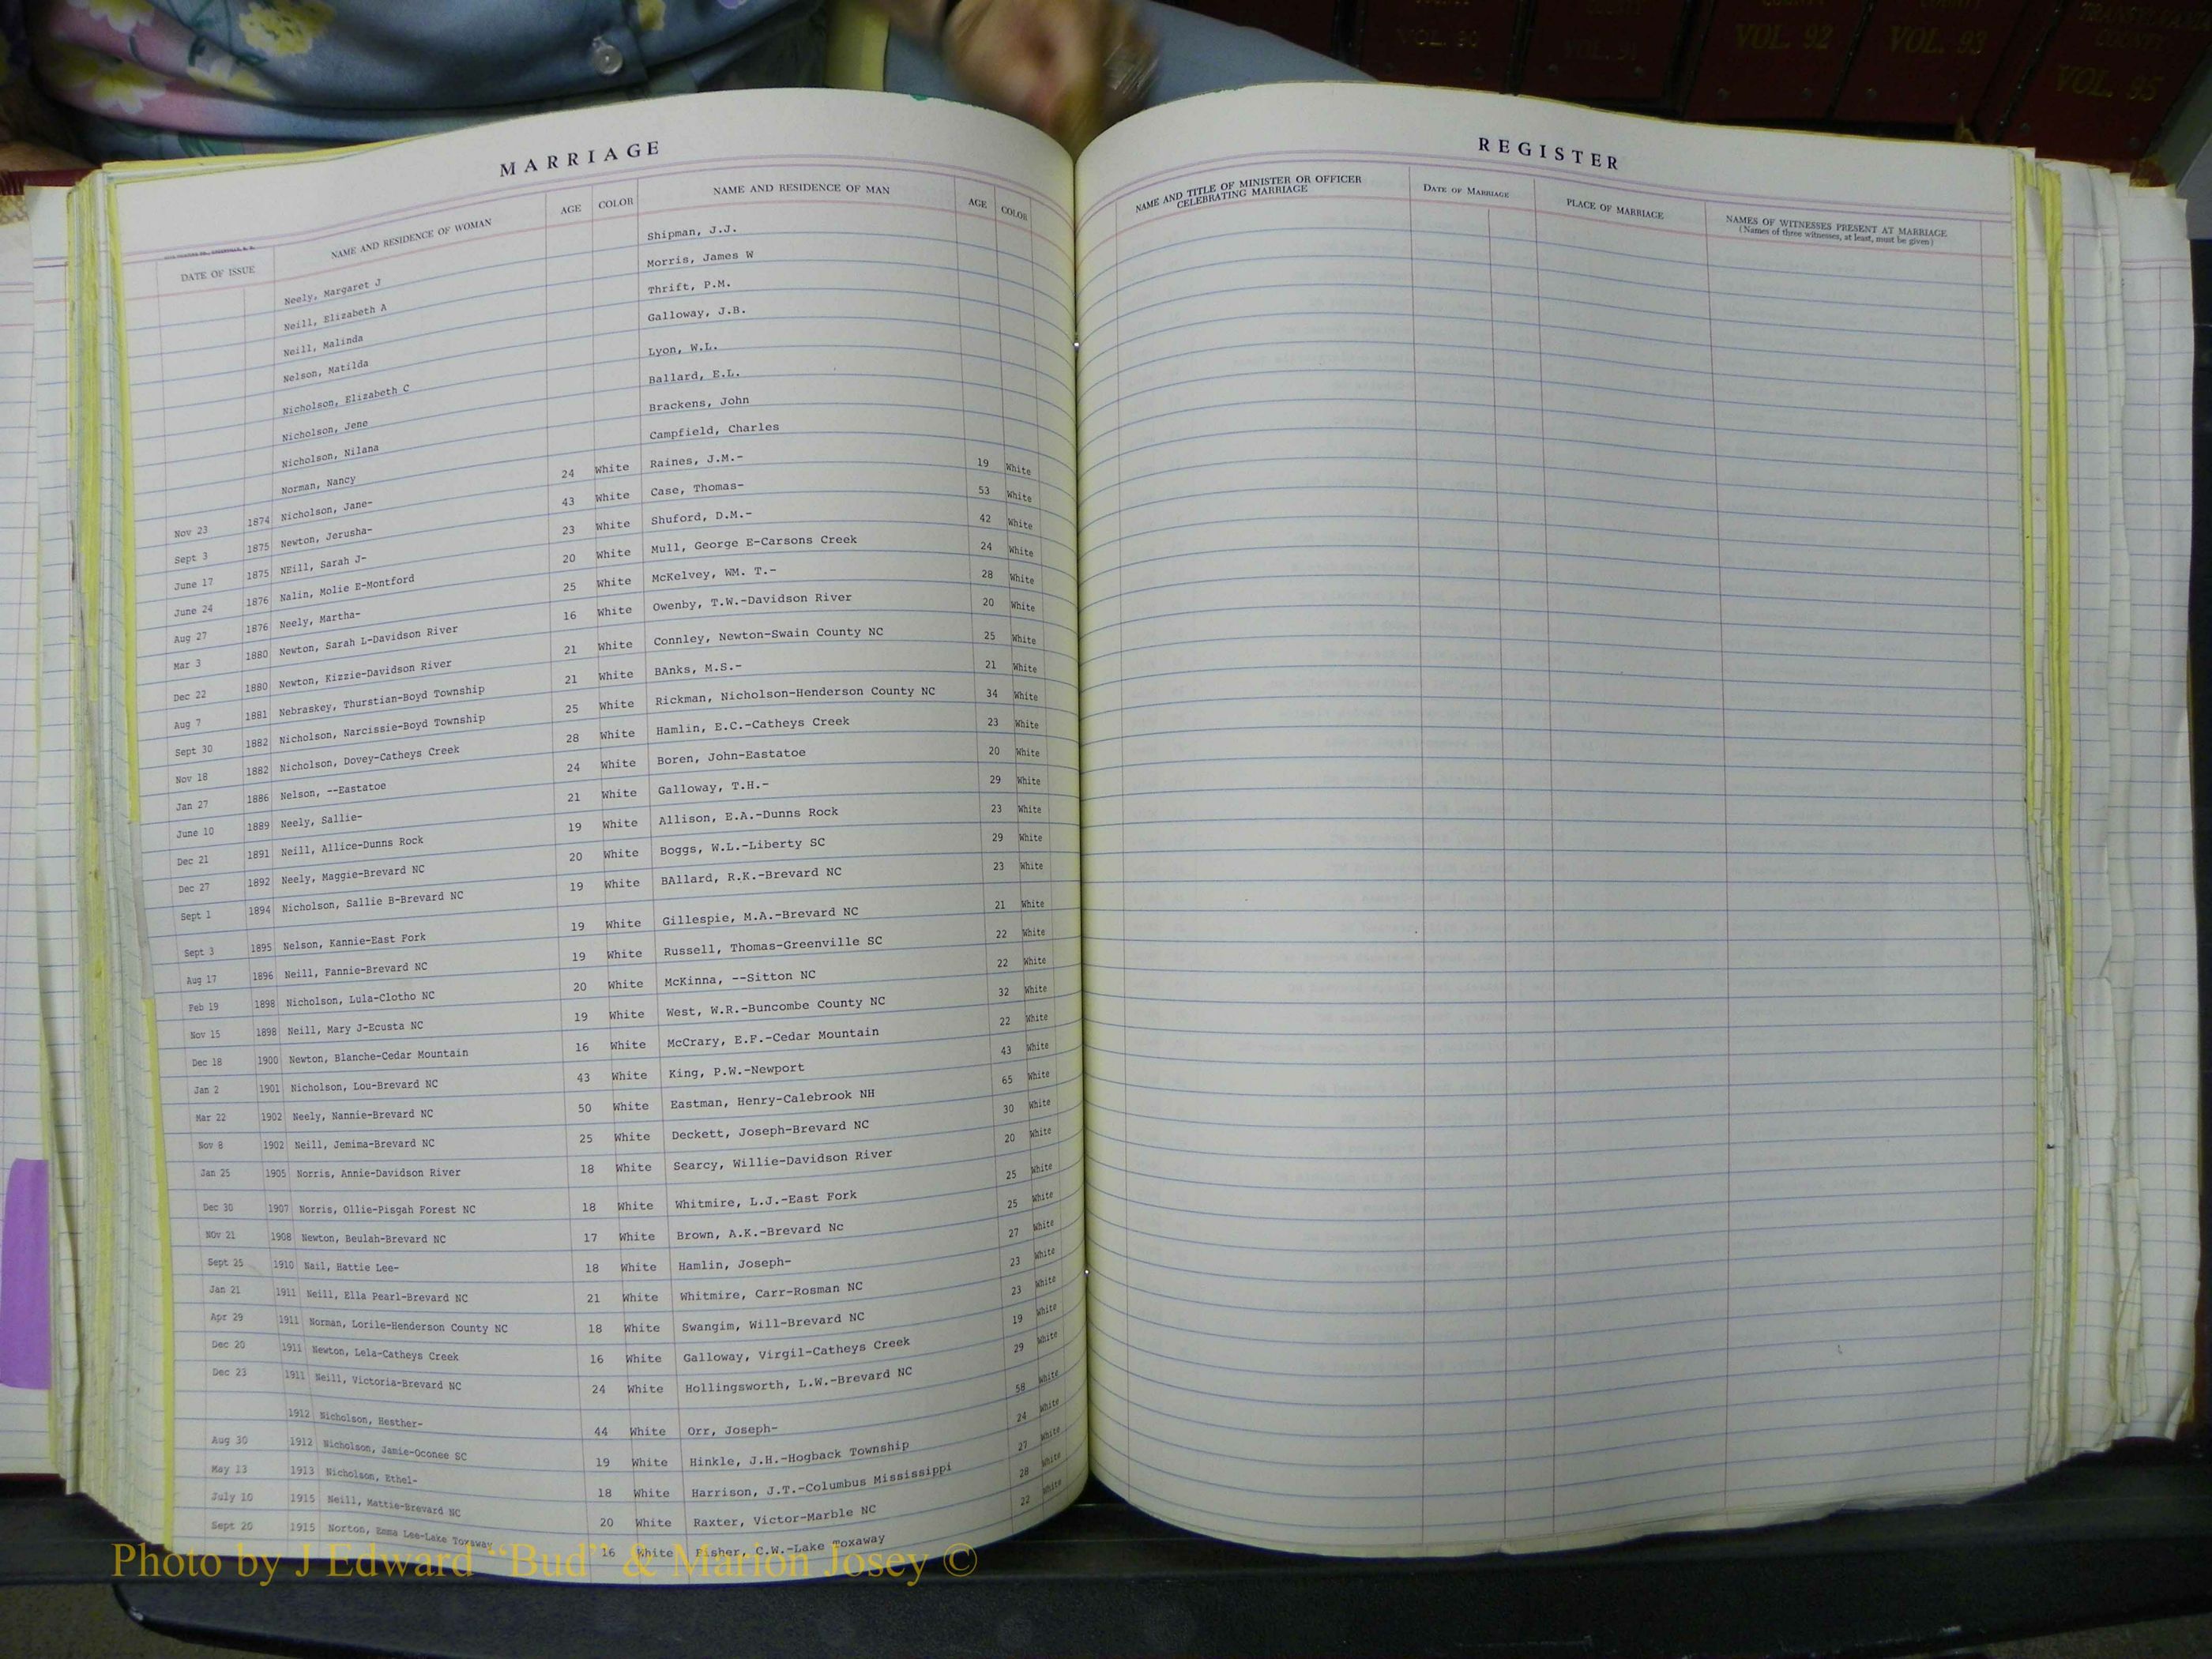 VOL. 90 VOL. 91 COUNTY VOL. 92 COUNTY VOL. 93 TRANSYLVANIA COUNTY VOL. 95
MARRIAGE
DATE OF ISSUE NAME AND RESIDENCE OF WOMAN AGE COLOR NAME AND RESIDENCE OF MAN AGE COLOR
Neely, Margaret J Shipman, J.J.
Neill, Elizabeth A Morris, James W
Neill, Malinda Thrift, P.M.
Nelson, Matilda Galloway, J.B.
Nicholson, Elizabeth C Lyon, W.L.
Nicholson, Jene Ballard, E.L.
Nicholson, Nilana Brackens, John
Norman, Nancy Campfield, Charles
Nov 23 1874 Nicholson, Jane- 24 White Raines, J.M.- 19 White
Sept 3 1875 Newton, Jerusha- 43 White Case, Thomas- 53 White
June 17 1875 NEill, Sarah J- 23 White Shuford, D.M.- 42 White
June 24 1876 Nalin, Molie E-Montford 20 White Mull, George E-Carsons Creek 24 White
Aug 27 1876 Neely, Martha- 25 White McKelvey, WM. T.- 28 White
Mar 3 1880 Newton, Sarah L-Davidson River 16 White Owenby, T.W.-Davidson River 20 White
Dec 22 1880 Newton, Kizzie-Davidson River 21 White Connley, Newton-Swain County NC 25 White
Aug 7 1881 Nebraskey, Thurstian-Boyd Township 21 White BAnks, M.S.- 21 White
Sept 30 1882 Nicholson, Narcissie-Boyd Township 25 White Rickman, Nicholson-Henderson County NC 34 White
Nov 18 1882 Nicholson, Dovey-Catheys Creek 28 White Hamlin, E.C.-Catheys Creek 23 White
Jan 27 1886 Nelson, --Eastatoe 24 White Boren, John-Eastatoe 20 White
June 10 1889 Neely, Sallie- 21 White Galloway, T.H.- 29 White
Dec 21 1891 Neill, Allice-Dunns Rock 19 White Allison, E.A.-Dunns Rock 23 White
Dec 27 1892 Neely, Maggie-Brevard NC 20 White Boggs, W.L.-Liberty SC 29 White
Sept 1 1894 Nicholson, Sallie B-Brevard NC 19 White BAllard, R.K.-Brevard NC 23 White
Sept 3 1895 Nelson, Kannie-East Fork 19 White Gillespie, M.A.-Brevard NC 21 White
Aug 17 1896 Neill, Fannie-Brevard NC 19 White Russell, Thomas-Greenville SC 22 White
Feb 19 1898 Nicholson, Lula-Clotho NC 20 White McKinna, --Sitton NC 22 White
Nov 15 1898 Neill, Mary J-Ecusta NC 19 White West, W.R.-Buncombe County NC 32 White
Dec 18 1900 Newton, Blanche-Cedar Mountain 16 White McCrary, E.F.-Cedar Mountain 22 White
Jan 2 1901 Nicholson, Lou-Brevard NC 43 White King, P.W.-Newport 43 White
Mar 22 1902 Neely, Nannie-Brevard NC 50 White Eastman, Henry-Calebrook NH 65 White
Nov 8 1902 Neill, Jemima-Brevard NC 25 White Deckett, Joseph-Brevard NC 30 White
Jan 25 1905 Norris, Annie-Davidson River 18 White Searcy, Willie-Davidson River 20 White
Dec 30 1907 Norris, Ollie-Pisgah Forest NC 18 White Whitmire, L.J.-East Fork 25 White
NOv 21 1908 Newton, Beulah-Brevard NC 17 White Brown, A.K.-Brevard Nc 25 White
Sept 25 1910 Nail, Hattie Lee- 18 White Hamlin, Joseph- 27 White
Jan 21 1911 Neill, Ella Pearl-Brevard NC 21 White Whitmire, Carr-Rosman NC 23 White
Apr 29 1911 Norman, Lorile-Henderson County NC 18 White Swangim, Will-Brevard NC 23 White
Dec 20 1911 Newton, Lela-Catheys Creek 16 White Galloway, Virgil-Catheys Creek 19 White
Dec 23 1911 Neill, Victoria-Brevard NC 24 White Hollingsworth, L.W.-Brevard NC 29 White
1912 Nicholson, Hesther- 44 White Orr, Joseph- 58 White
Aug 30 1912 Nicholson, Jamie-Oconee SC 19 White Hinkle, J.H.-Hogback Township 24 White
May 13 1913 Nicholson, Ethel- 18 White Harrison, J.T.-Columbus Mississippi 27 White
July 10 1915 Neill, Mattie-Brevard NC 20 White Raxter, Victor-Marble NC 28 White
Sept 20 1915 Norton, Emma Lee-Lake Toxaway 16 White Fisher, C.W.-Lake Toxaway 22 White
REGISTER
NAME AND TITLE OF MINISTER OR OFFICER CELEBRATING MARRIAGE DATE OF MARRIAGE PLACE OF MARRIAGE NAMES OF WITNESSES PRESENT AT MARRIAGE
(Names of three witnesses, at least, must be given)
Photo by J Edward "Bud" & Marion Josey ©